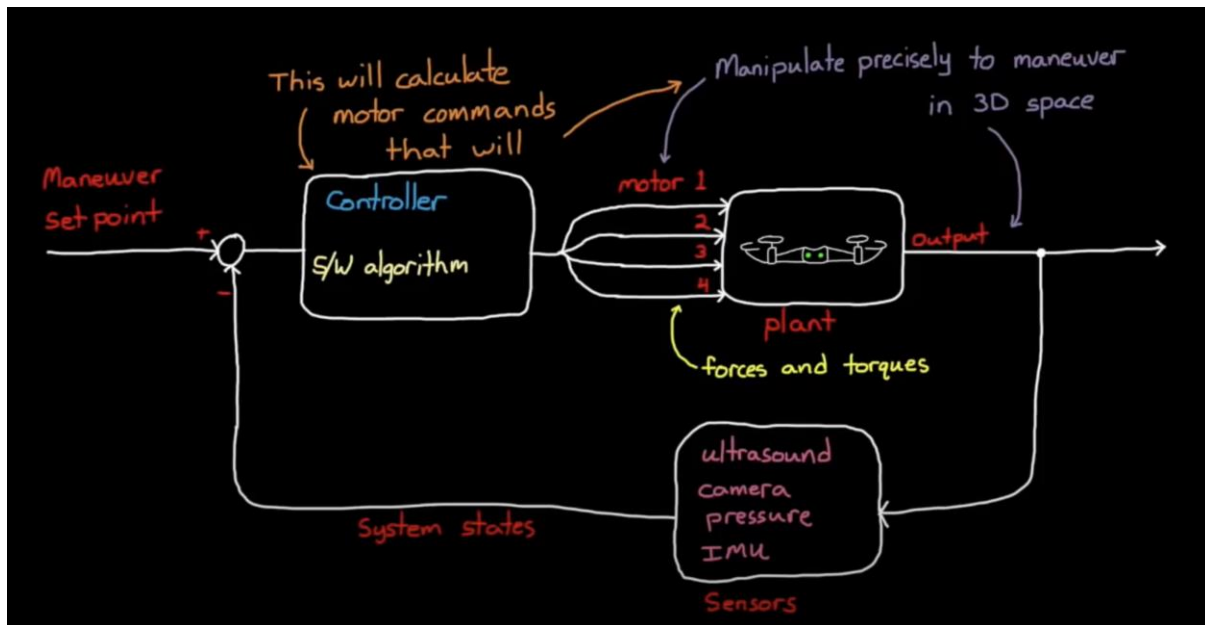 This will calculate
motor commands
that will
Manipulate precisely to maneuver
in 3D space
Maneuver
setpoint
+
-
Controller
S/W algorithm
motor 1
2
3
4
output
plant
forces and torques
ultrasound
camera
pressure
IMU
System states
Sensors